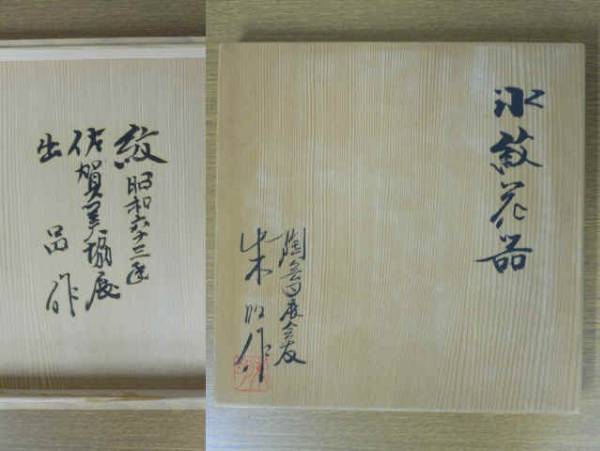 紋
昭和六十三年
佐賀美協展
出品作
氷紋花器
陶芸四展会友